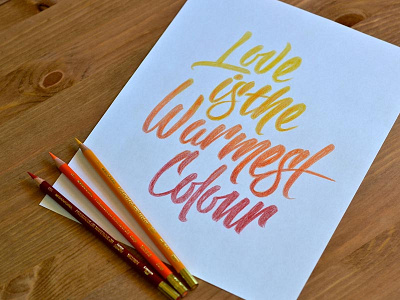 Love
is the
Warmest
Colour